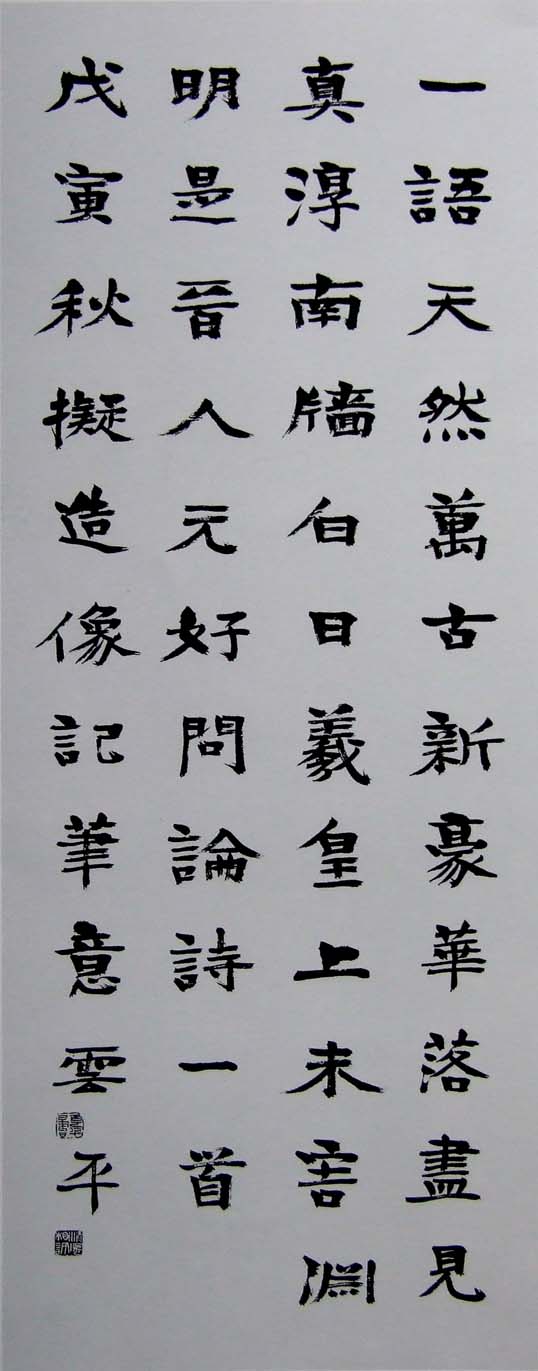 一語天然萬古新豪華落盡見
真淳南牕白日羲皇上未害淵
明是晉人元好問論詩一首
戊寅秋擬造像記筆意雲平